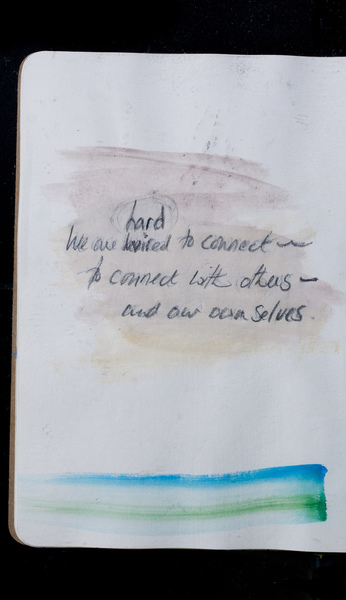 hard
We are wired to connect –
to connect with others –
and our own selves.